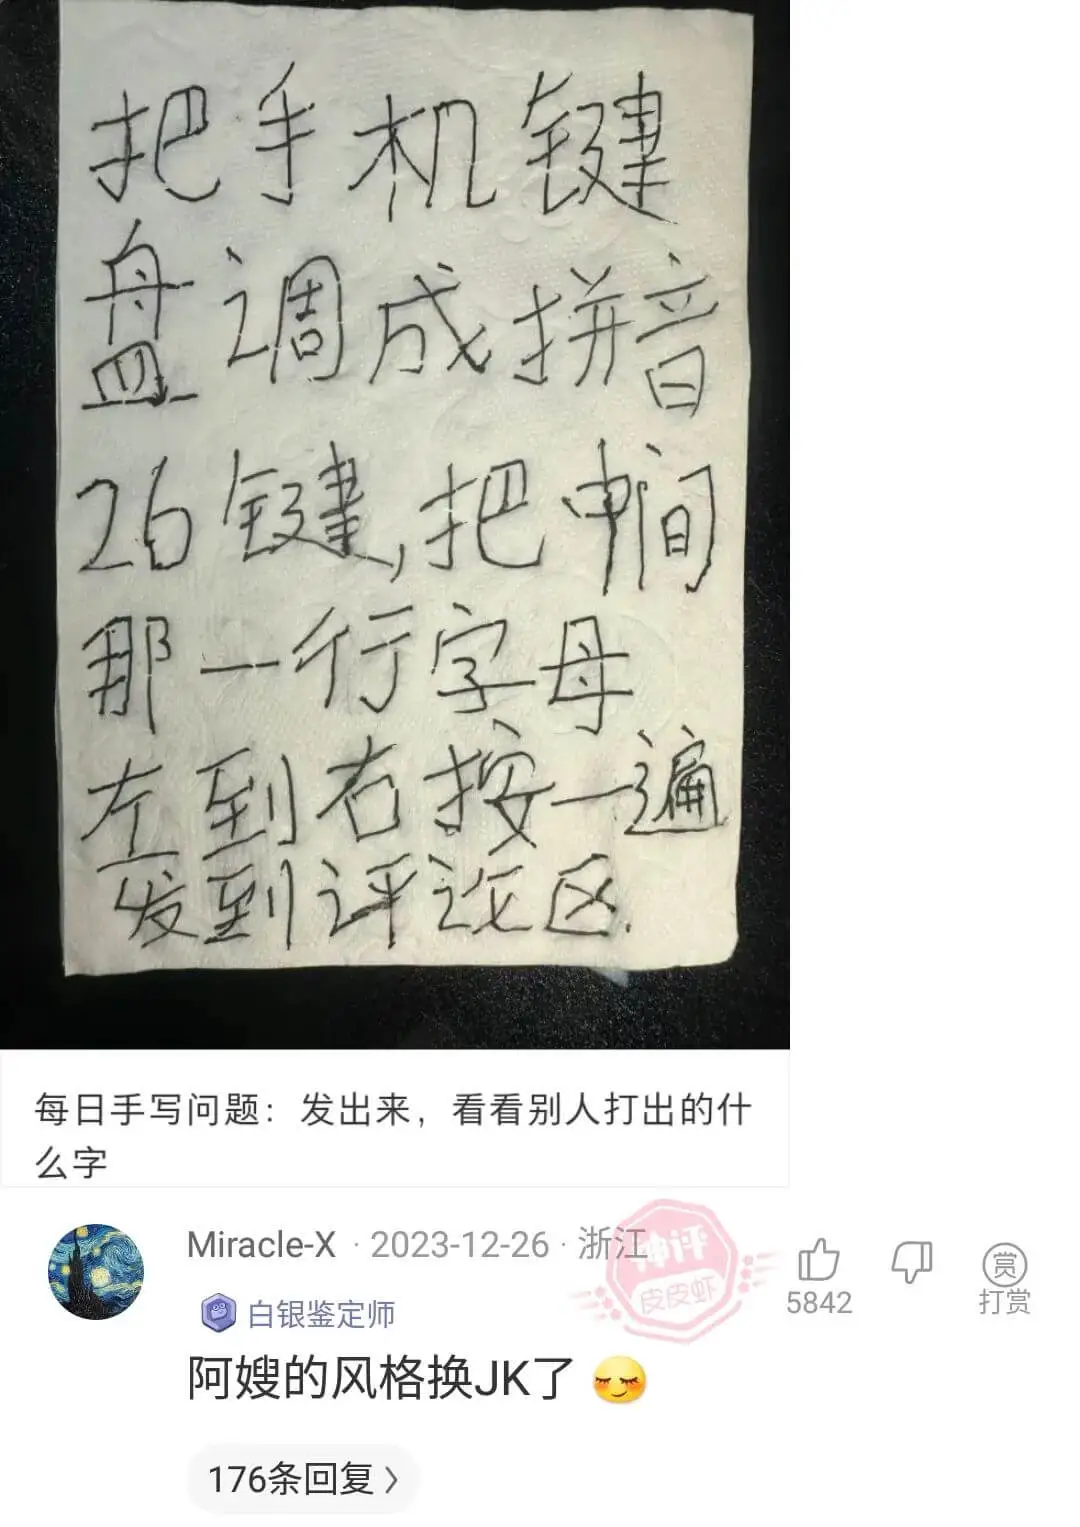 把手机键
盘调成拼音
26键,把中间
那一行字母
左到右按一遍
发到评论区.
每日手写问题：发出来，看看别人打出的什
么字
Miracle-X · 2023-12-26 · 浙江
神评
皮皮虾
5842
打赏
赏
白银鉴定师
阿嫂的风格换JK了
176条回复